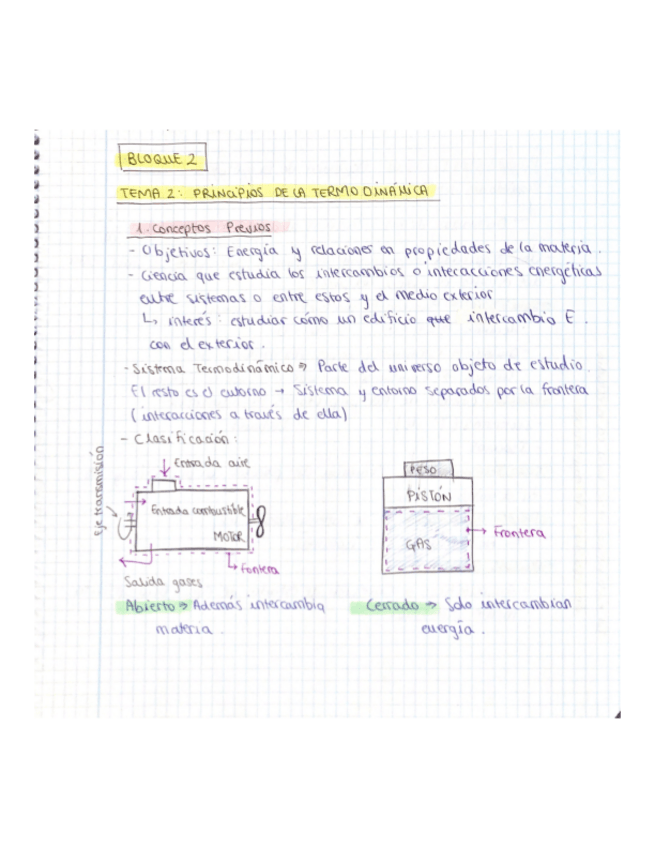 BLOQUE 2
TEMA 2: PRINCIPIOS DE LA TERMODINÁMICA
1. Conceptos Previos
- Objetivos: Energía y relaciones en propiedades de la materia.
- Ciencia que estudia los intercambios o interacciones energéticas
entre sistemas o entre estos y el medio exterior
↳ interés: estudiar cómo un edificio que intercambio E.
con el exterior.
- Sistema Termodinámico → Parte del universo objeto de estudio.
El resto es el entorno → Sistema y entorno separados por la frontera
(interacciones a través de ella)
- Clasificación:
Eje transmisión
Entrada aire
Entrada combustible
MOTOR
Fontera
Salida gases
PESO
PISTÓN
GAS
Frontera
Abierto → Además intercambia
materia.
Cerrado → Solo intercambian
energía.